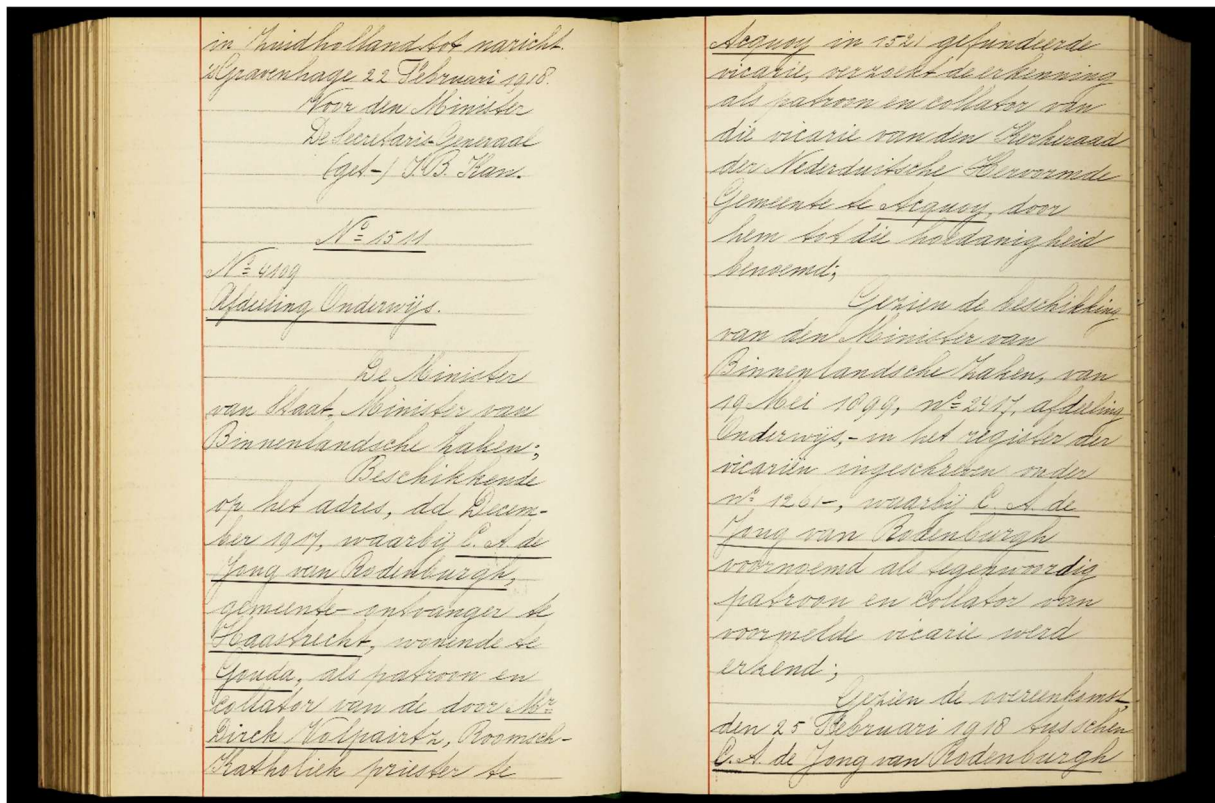 in Zuidholland tot naricht.
's Gravenhage 22 Februari 1918.
Voor den Minister
De Secretaris-Generaal
(get-) J.B. Kan.
Nº 1511
Nº 4109
Afdeeling Onderwijs.
De Minister
van Staat, Minister van
Binnenlandsche Zaken;
Beschikkende
op het adres, dd Decem-
ber 1917, waarbij C. A. de
Jong van Rodenburgh,
gemeente-ontvanger te
Haastrecht, wonende te
Gouda, als patroon en
collator van de door Mr
Dirck Volpairtz, Roomsch-
Katholiek priester te
Acquoy in 1521 gefundeerde
vicarie, verzoekt de erkenning
als patroon en collator van
die vicarie van den Kerkeraad
der Nederduitsche Hervormde
Gemeente te Acquoy, door
hem tot die hoedanigheid
benoemd;
Gezien de beschikking
van den Minister van
Binnenlandsche Zaken, van
19 Mei 1899, nº 2417, afdeeling
Onderwijs,- in het register der
vicariën ingeschreven onder
nº 1261-, waarbij C. A. de
Jong van Rodenburgh
voornoemd als tegenwoordig
patroon en collator van
voormelde vicarie werd
erkend;
Gezien de overeenkomst,
den 25 Februari 1918 tusschen
C. A. de Jong van Rodenburgh